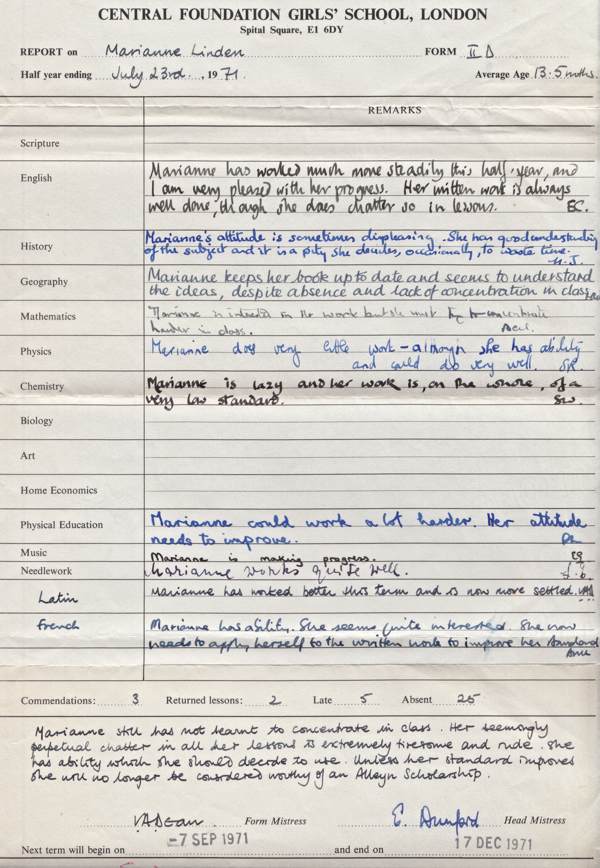 CENTRAL FOUNDATION GIRLS' SCHOOL, LONDON
Spital Square, E1 6DY
REPORT on Marianne Linden FORM II D
Half year ending July 23rd, 1971. Average Age 13.5 mths.
REMARKS
Scripture
English Marianne has worked much more steadily this half-year, and
I am very pleased with her progress. Her written work is always
well done, though she does chatter so in lessons. EC.
History Marianne's attitude is sometimes displeasing. She has good understanding
of the subject and it is a pity she decides, occasionally, to waste time.
H.J.
Geography Marianne keeps her book up to date and seems to understand
the ideas, despite absence and lack of concentration in class
Mathematics Marianne is interested in the work but she must try to concentrate
harder in class.
Physics Marianne does very little work - although she has ability
and could do very well.
Chemistry Marianne is lazy and her work is, on the whole, of a
very low standard. SW.
Biology
Art
Home Economics
Physical Education Marianne could work a lot harder. Her attitude
needs to improve.
Music Marianne is making progress.
Needlework Marianne works quite well.
Latin Marianne has worked better this term and is now more settled.
French Marianne has ability. She seems quite interested. She now
needs to apply herself to the written work to improve her standard
Commendations: 3 Returned lessons: 2 Late 5 Absent 25
Marianne still has not learnt to concentrate in class. Her seemingly
perpetual chatter in all her lessons is extremely tiresome and rude. She
has ability which she should decide to use. Unless her standard improves
she will no longer be considered worthy of an Alleyn Scholarship.
VADean Form Mistress E. Dunford Head Mistress
Next term will begin on -7 SEP 1971 and end on 17 DEC 1971